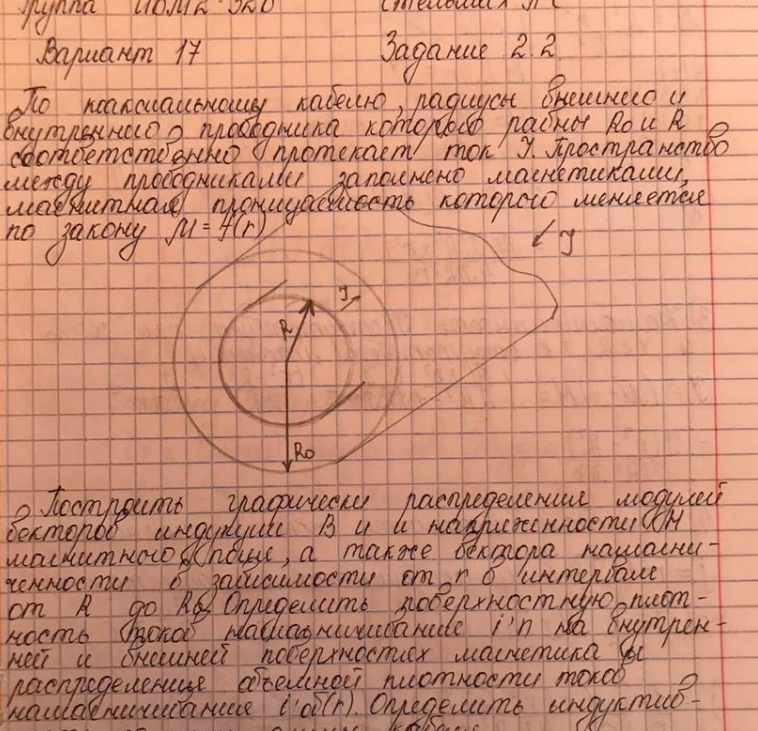 Группа
Вариант 17 Задание 2.2.
По коаксиальному кабелю, радиусы внешнего и
внутреннего проводника которого равны R₀ и R
соответственно протекает ток I. Пространство
между проводниками заполнено магнетиками,
магнитная проницаемость которого меняется
по закону μ = f(r)
I
I
R
R₀
Построить графически распределения модулей
векторов индукции B и и напряженности H
магнитного поля, а также вектора намагни-
ченности в зависимости от r в интервале
от R до R₀. Определить поверхностную плот-
ность токов намагничивания i'п на внутрен-
ней и внешней поверхностях магнетика и
распределение объемной плотности токов
намагничивания i'об(r). Определить индуктив-